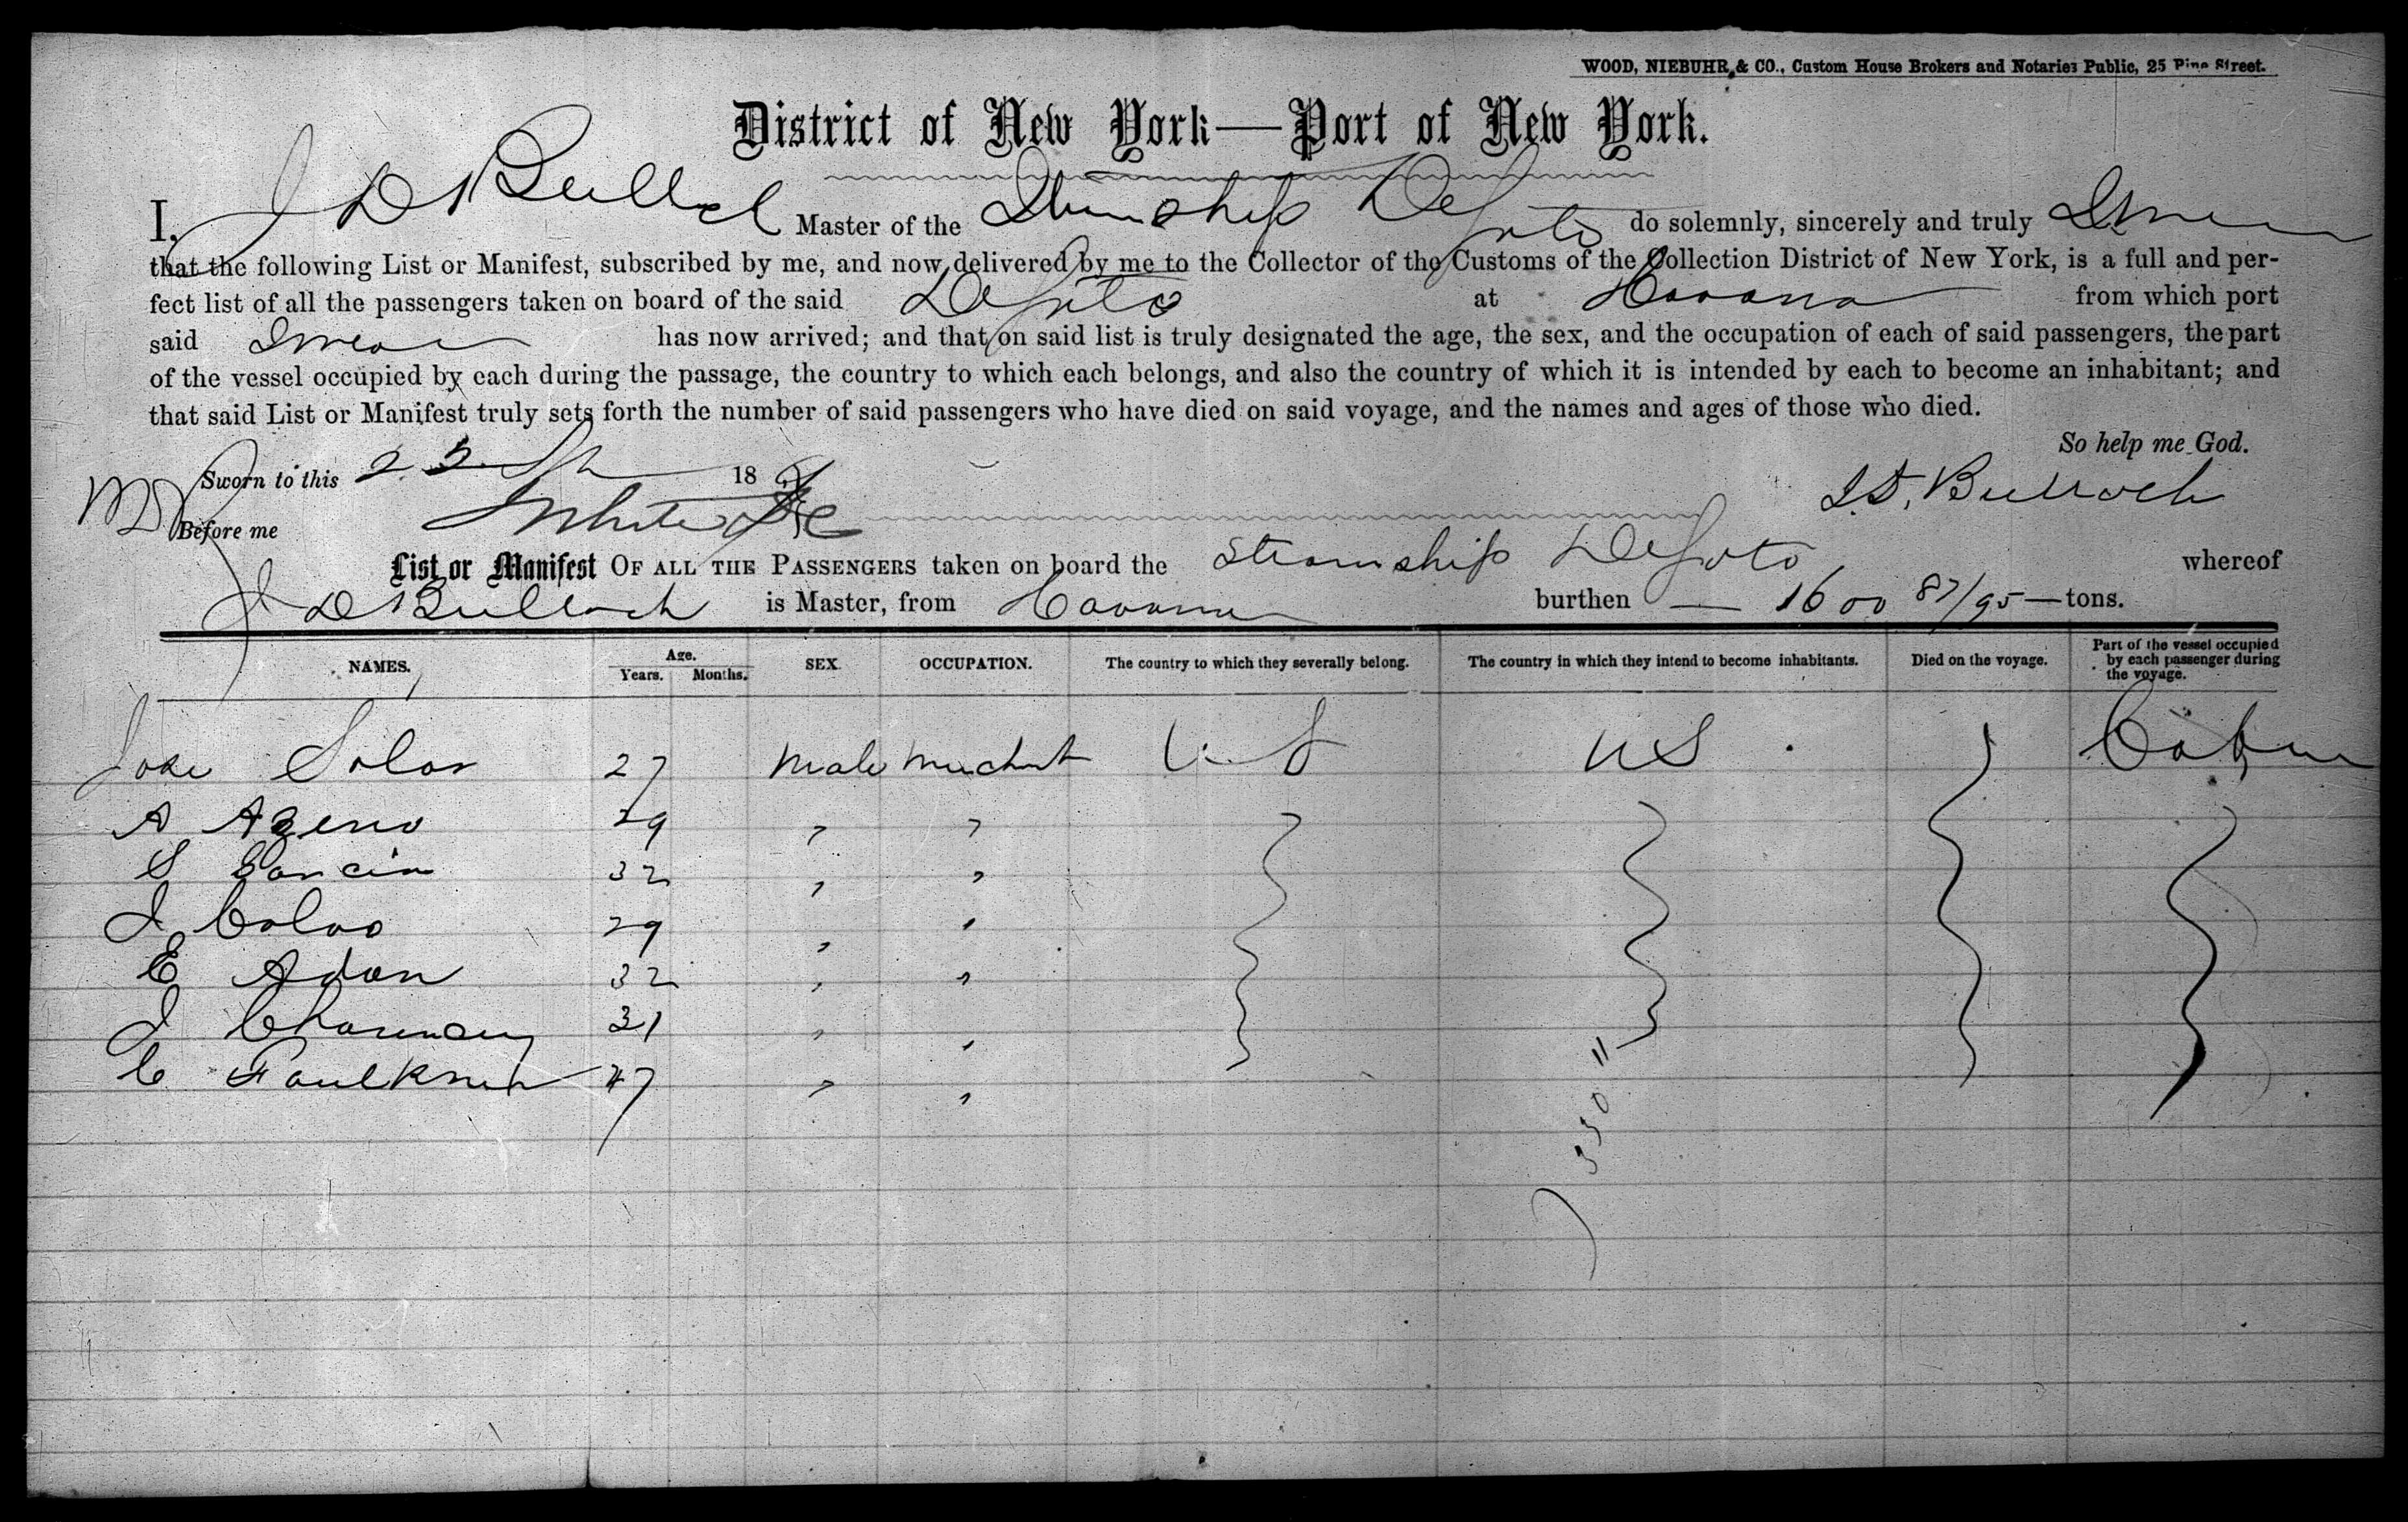 WOOD, NIEBUHR, & CO., Custom House Brokers and Notaries Public, 25 Pine Street.
District of New York—Port of New York.
I, J D Bulloch Master of the Steamship De Soto do solemnly, sincerely and truly Swear
that the following List or Manifest, subscribed by me, and now delivered by me to the Collector of the Customs of the Collection District of New York, is a full and per-
fect list of all the passengers taken on board of the said De Soto at Havana from which port
said Swear has now arrived; and that on said list is truly designated the age, the sex, and the occupation of each of said passengers, the part
of the vessel occupied by each during the passage, the country to which each belongs, and also the country of which it is intended by each to become an inhabitant; and
that said List or Manifest truly sets forth the number of said passengers who have died on said voyage, and the names and ages of those who died.
So help me God.
Sworn to this 18
J. D. Bulloch
Before me
List or Manifest OF ALL THE PASSENGERS taken on board the Steamship De Soto whereof
J D Bulloch is Master, from Havana burthen — 1600 87/95 — tons.
NAMES. Age. Years. Months. SEX. OCCUPATION. The country to which they severally belong. The country in which they intend to become inhabitants. Died on the voyage. Part of the vessel occupied by each passenger during the voyage.
Jose Solar 27 Male Merchant U S U S Cabin
A Azeno 29 " "
S Garcia 32 " "
J Calvo 29 " "
E Adan 32 " "
J Chauncey 31 " "
C Faulkner 47 " "